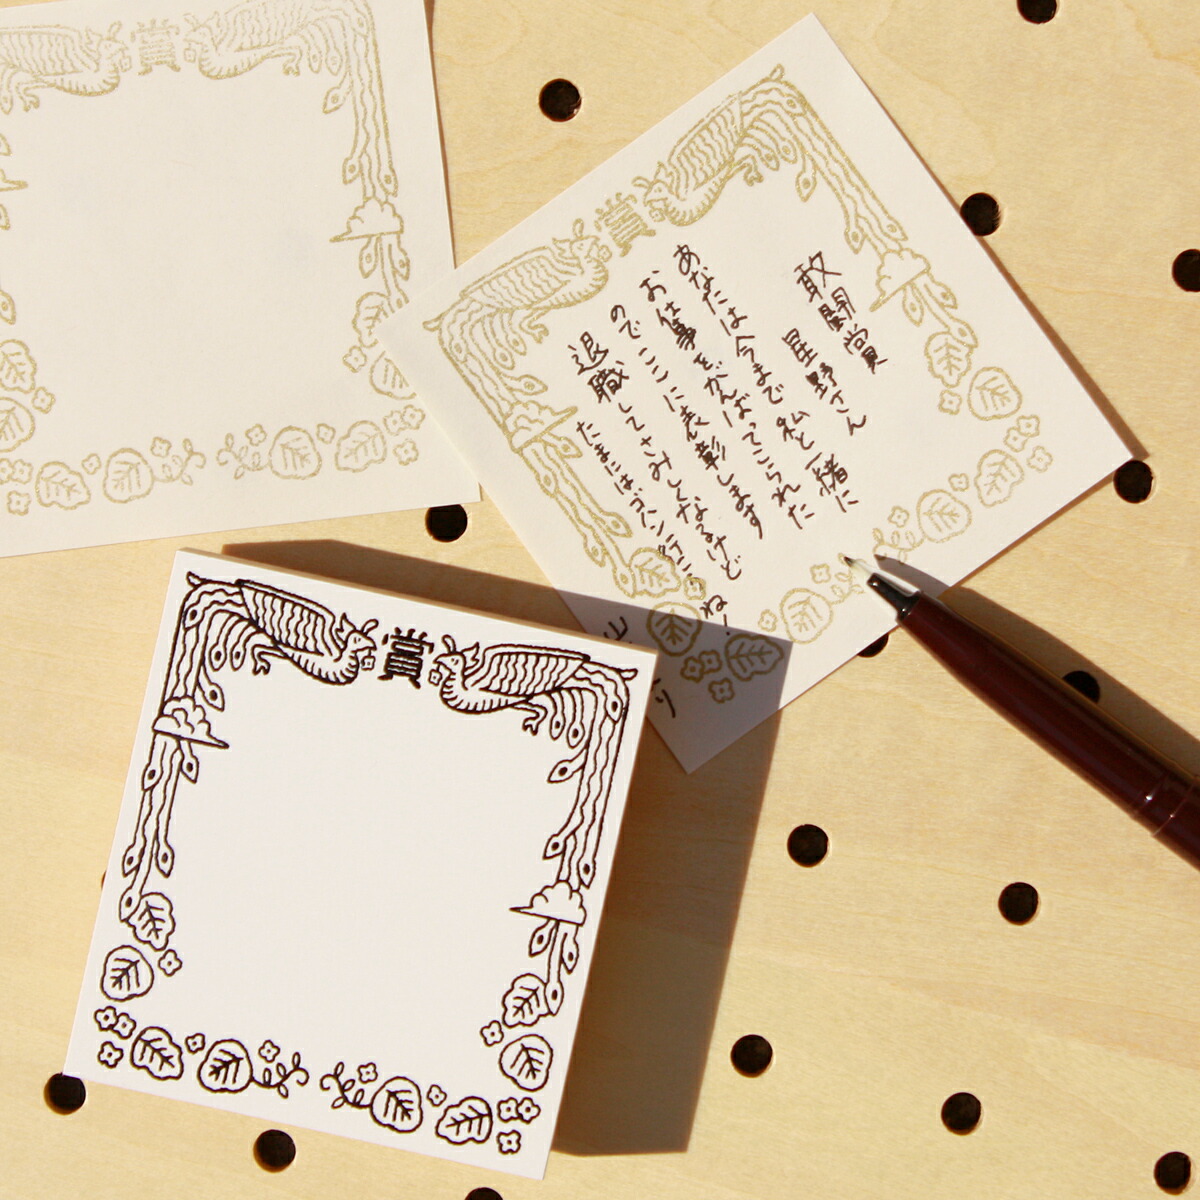 賞
賞
敢闘賞
星野さん
あなたは今まで私と一緒に
お仕事をがんばってこられた
のでここに表彰します
退職してさみしくなるけど
たまにはゴハン行こうね!
賞